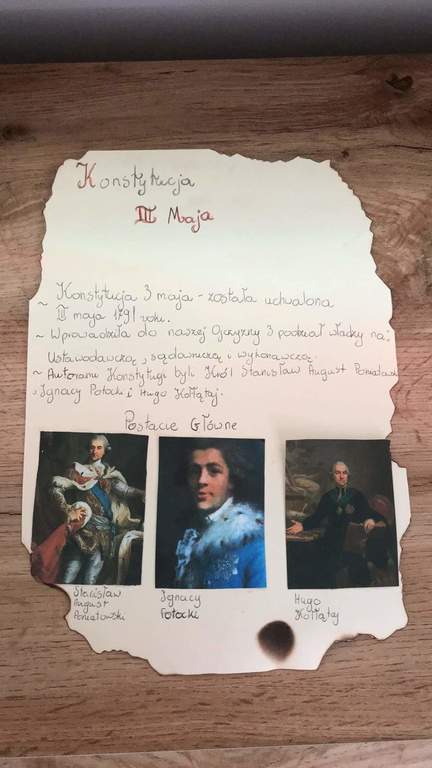 Konstytucja
III Maja
~ Konstytucja 3 maja - została uchwalona
III maja 1791 roku.
~ Wprowadziła do naszej Ojczyzny 3 podział władzy na:
Ustawodawczą, sądowniczą i wykonawczą.
~ Autorami Konstytucji byli Król Stanisław August Poniatowski
, Ignacy Potocki i Hugo Kołłątaj.
Postacie Główne
Stanisław
August
Poniatowski
Ignacy
Potocki
Hugo
Kołłątaj